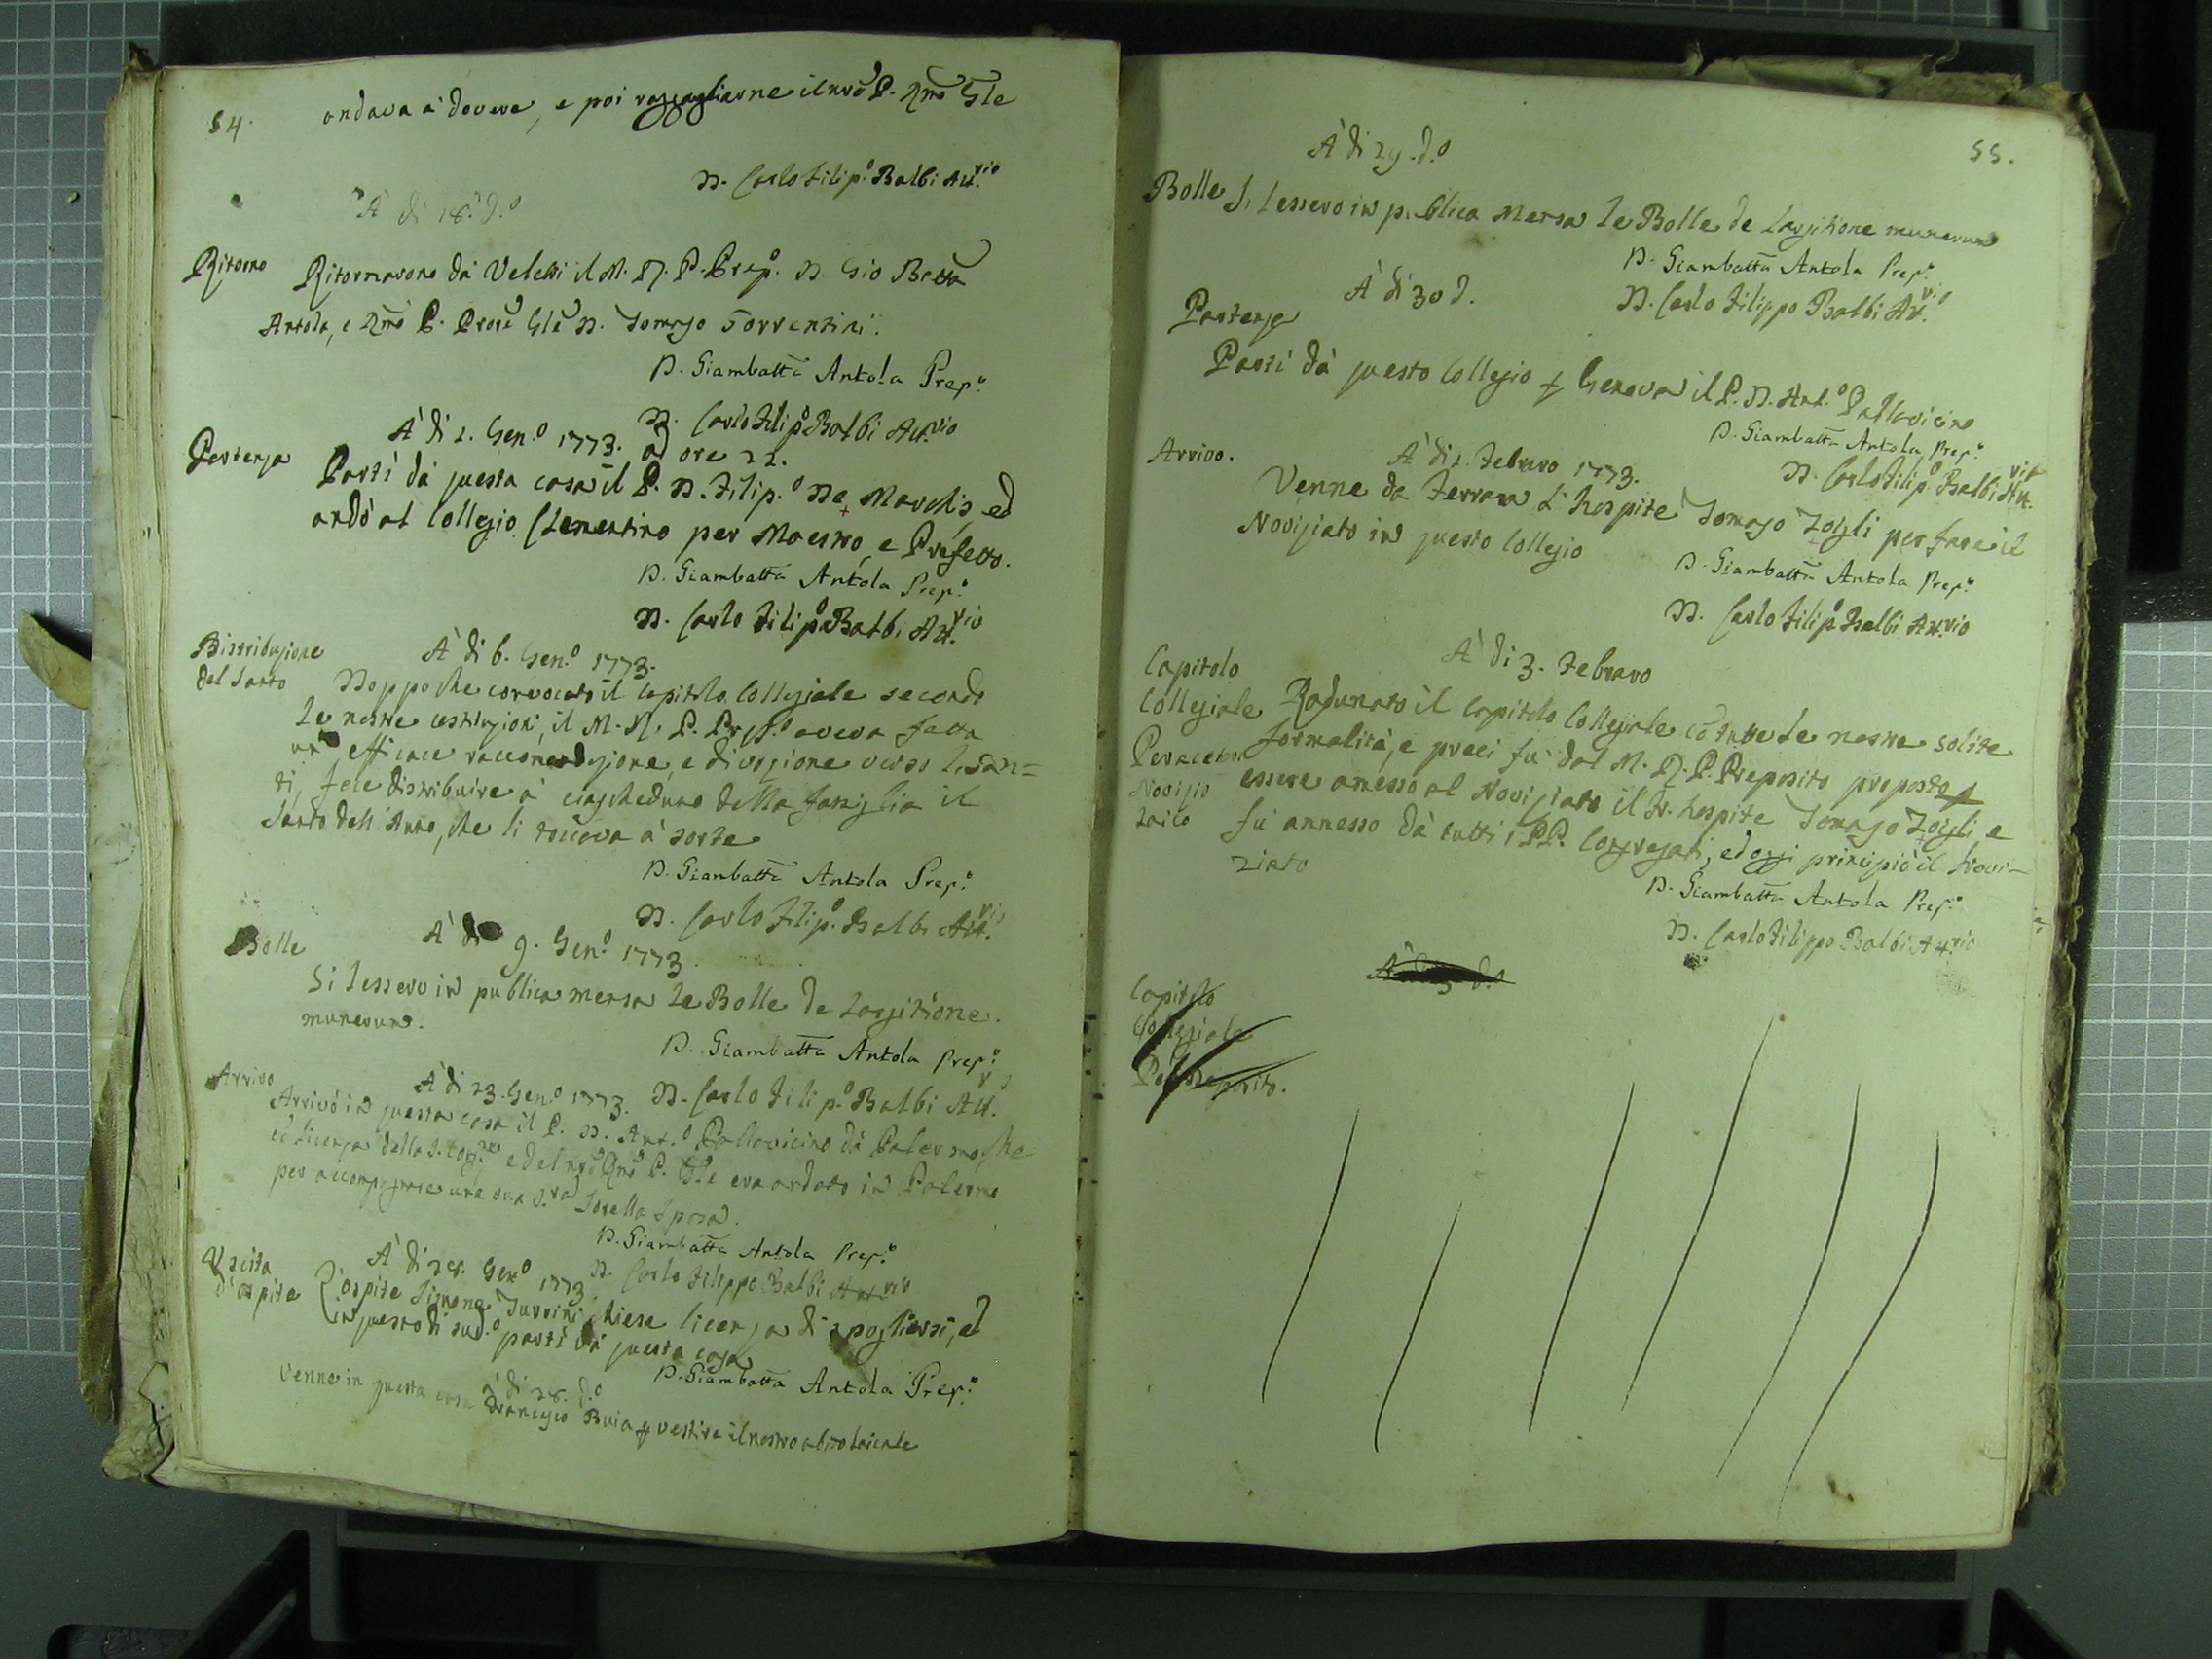 54.
andava à dovere, e poi ragguagliarne il nrõ P. Rmõ Gle
D. Carlo Filip.º Balbi Att.rio
A di 18. d.º
Ritorno
Ritornarono da Velletri il M. R. P. Prep.º D. Gio Batta
Antola, e Rmõ P. Procr̃e Gle D. Tomaso Sorrentini.
D. Giambatta Antola Prep.º
D. Carlo Filip.º Balbi Att.rio
À di 2. Gen.º 1773. ad ore 22.
Partenza
Partì da questa casa il P. D. Filip.º De Marchis, ed
andò al Collegio Clementino per Maestro, e Prefetto.
D. Giambatta Antola Prep.º
D. Carlo Filip.º Balbi Att.rio
Distribuzione
del Santo
À di 6. Gen.º 1773.
Doppo che convocato il Capitolo Collegiale secondo
le nostre costituzioni, il M. R. P. Prep.º aveva fatta
un' efficace raccomandazione, e divozione verso li San=
ti, fece distribuire à ciascheduno della famiglia il
Santo dell' Anno, che li toccava à sorte
D. Giambatta Antola Prep.º
D. Carlo Filip.º Balbi Att.rio
Bolle
À di 9. Gen.º 1773.
Si lessero in publica mensa le Bolle de Largitione
munerum.
D. Giambatta Antola Prep.º
D. Carlo Filip.º Balbi Att.
Arrivo
À di 23. Gen.º 1773.
Arrivò in questa casa il P. D. Ant.º Pallavicino da Palermo, che
cõ licenza della S. Cong.ne e del nrõ Rmõ P. Gle era andato in Palermo
per accompagnare una sua Sorella Sposa.
D. Giambatta Antola Prep.º
D. Carlo Filippo Balbi Att.rio
Uscita
d'ospite
À di 28. Gen.º 1773
L'ospite Simone Turrini chiese licenza di spogliarsi, ed
in questo di sud.º partì da questa casa
D. Giambatta Antola Prep.º
à di 28. d.º
Venne in questa casa Francesco Buia per vestire il nostro abito laicale
55.
À di 29. d.º
Bolle
Si lessero in publica Mensa le Bolle de Largitione munerum
D. Giambatta Antola Prep.º
D. Carlo Filippo Balbi Att.rio
À di 30 d.
Partenza
Partì da questo Collegio per Genova il P. D. Ant.º Pallavicino
D. Giambatta Antola Prep.º
D. Carlo Filip.º Balbi Att.rio
Arrivo.
À di 2. Febraro 1773.
Venne da Ferrara l' hospite Tomaso Zoigli per fare il
Noviziato in questo Collegio
D. Giambatta Antola Prep.º
D. Carlo Filip.º Balbi Att.rio
À di 3. Febraro
Capitolo
Collegiale
Novizio
Laico
Radunato il Capitolo Collegiale cõ tutte le nostre solite
formalità, e preci fù dal M. R. P. Preposito proposto per
essere amesso al Noviziato il Fr. hospite Tomaso Zoigli, e
fù ammesso dà tutti i PP. Congregati, ed oggi principiò il Novi-
ziato
D. Giambatta Antola Prep.º
D. Carlo Filippo Balbi Att.rio
Capitolo
Collegiale